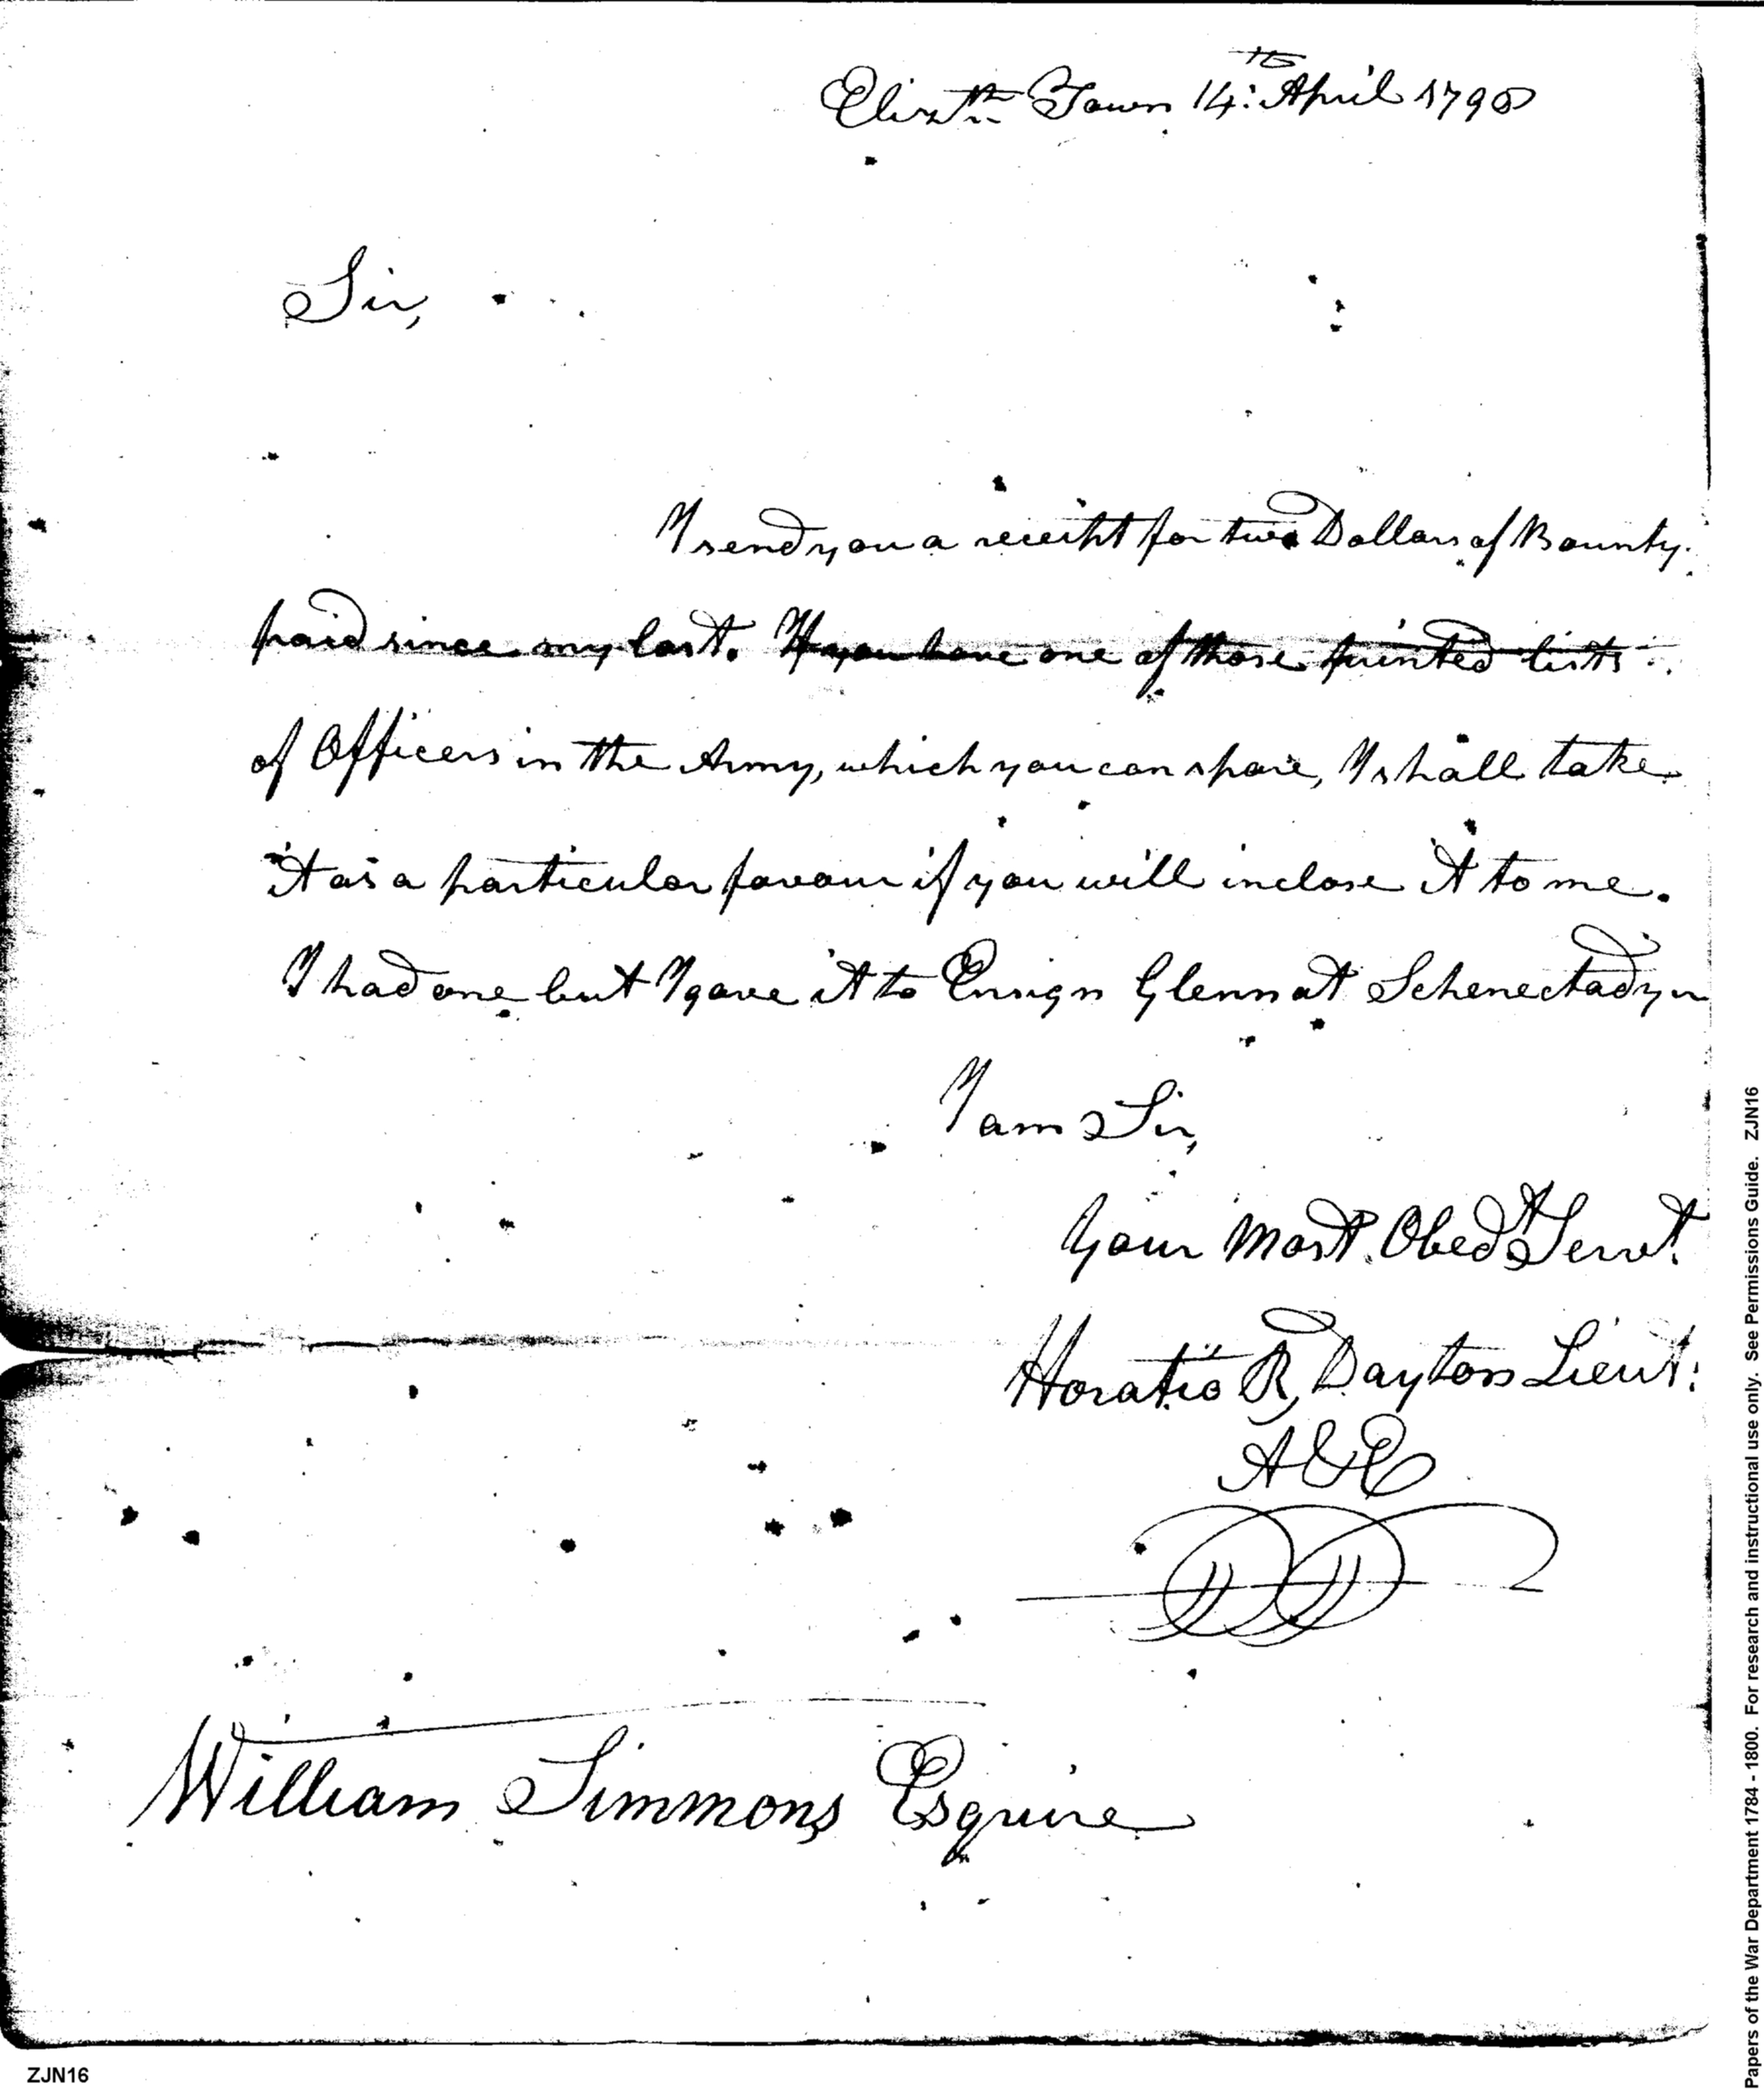 Elizth Town 14th April 1798
Sir,
I send you a receipt for two Dollars of Bounty
paid since my last. If you have one of those printed lists
of Officers in the Army, which you can spare, I shall take
it as a particular favour if you will inclose it to me.
I had one but I gave it to Ensign Glenn at Schenectady
I am Sir,
Your Most Obedt Servt
Horatio R, Dayton Lieut:
A & E
William Simmons Esquire
ZJN16
Papers of the War Department 1784 - 1800. For research and instructional use only. See Permissions Guide. ZJN16